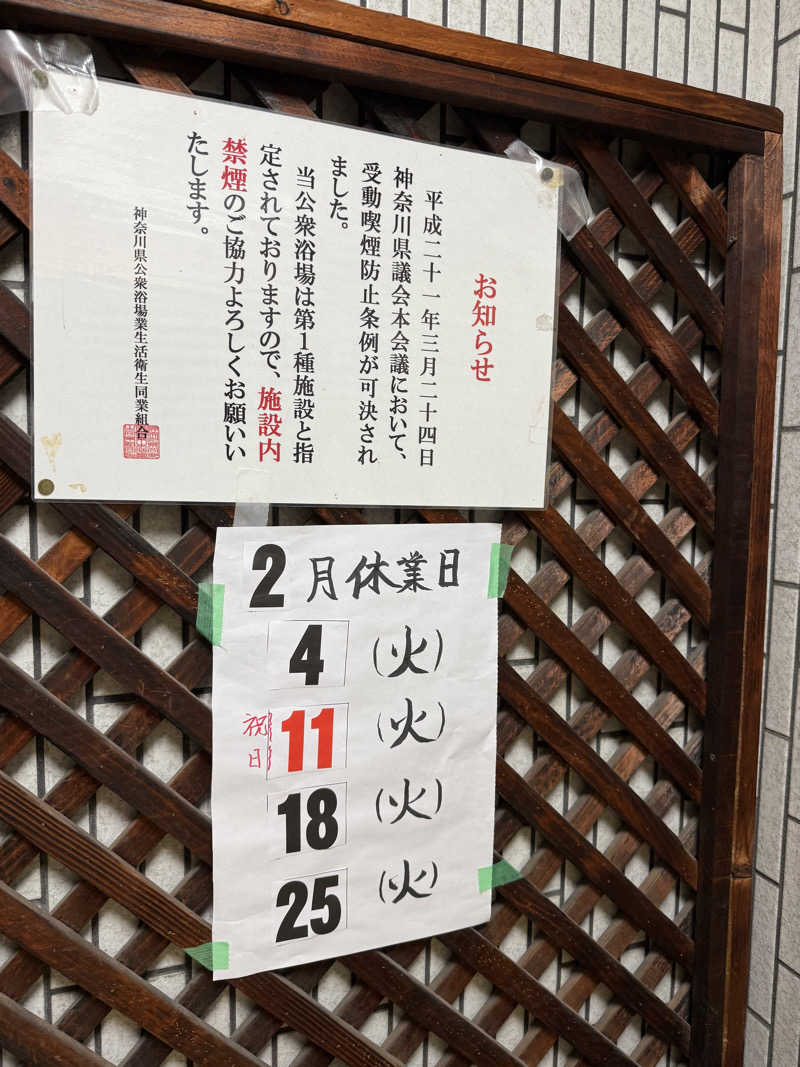 お知らせ
平成二十一年三月二十四日
神奈川県議会本会議において、
受動喫煙防止条例が可決され
ました。
当公衆浴場は第1種施設と指
定されておりますので、施設内
禁煙のご協力よろしくお願いい
たします。
神奈川県公衆浴場業生活衛生同業組合
2月休業日
4(火)
祝日 11(火)
18(火)
25(火)